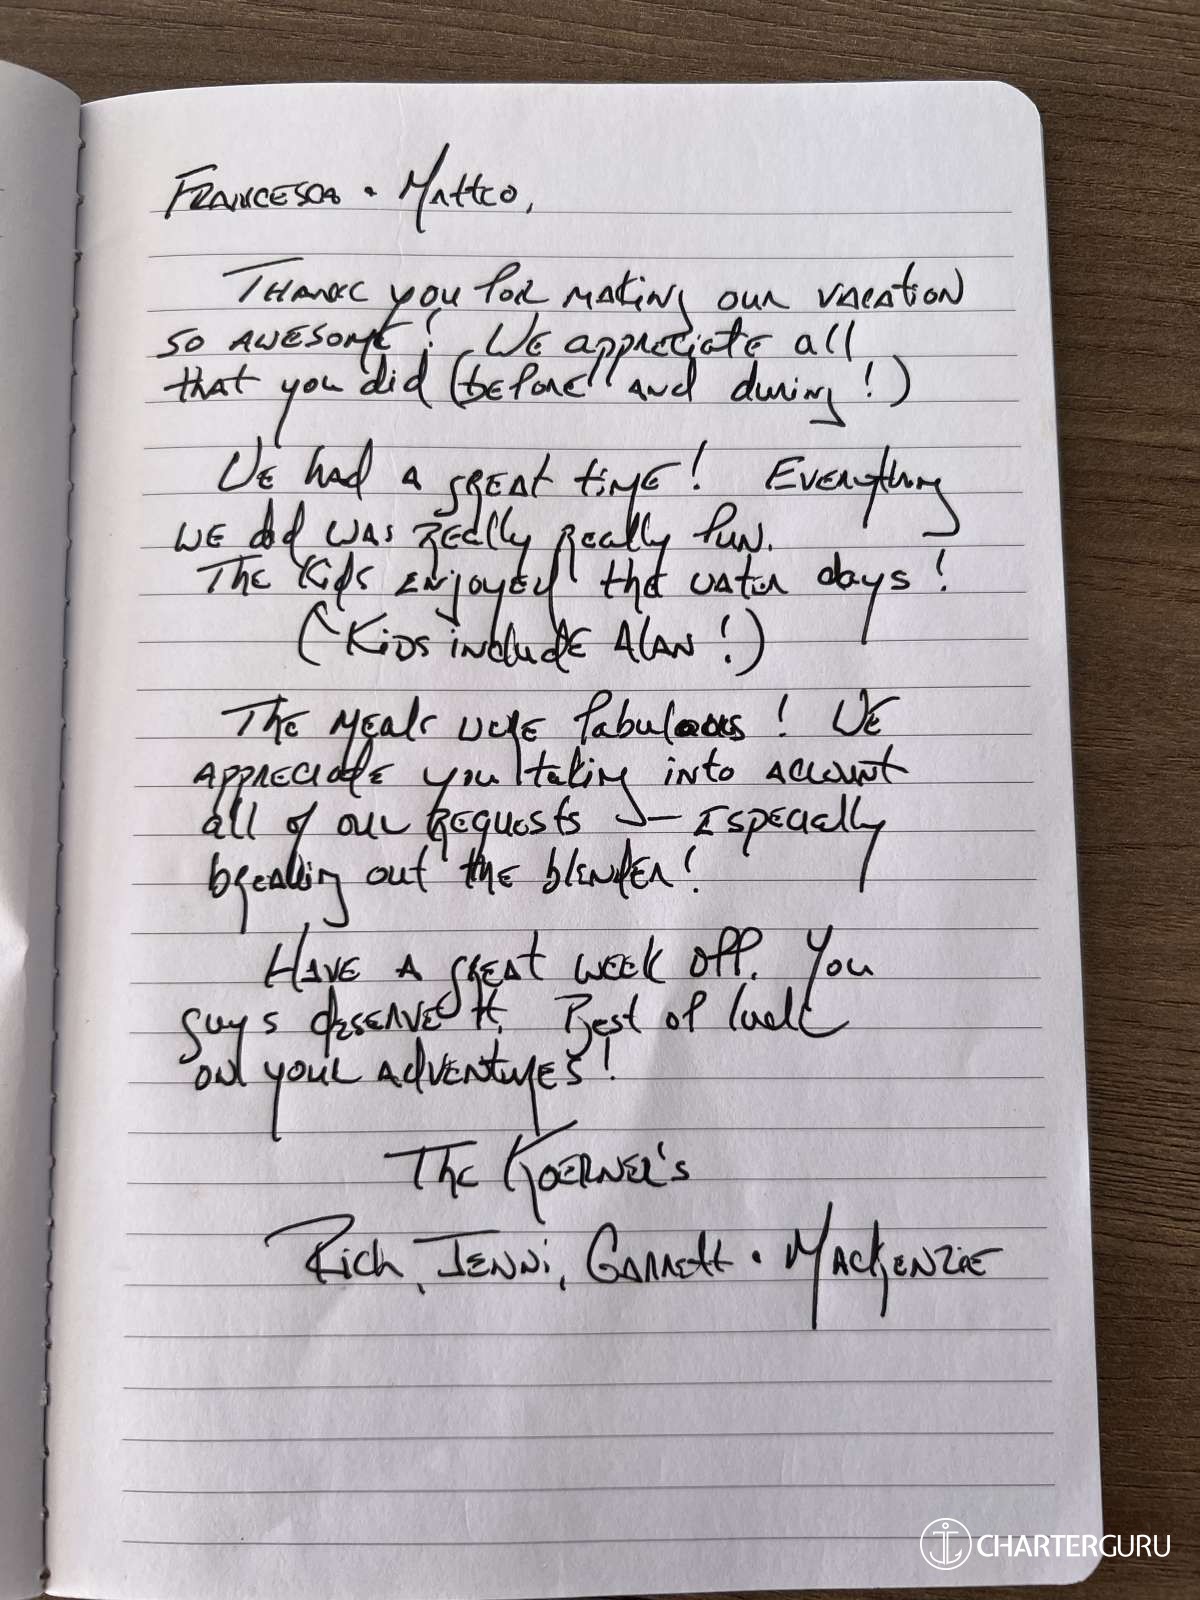 Francesca • Matteo,
Thank you for making our vacation
so awesome! We appreciate all
that you did (before and during!)
We had a great time! Everything
we did was really really fun.
The kids enjoyed the water days!
(^Kids include Alan!)
The meals were fabulous! We
appreciate you taking into account
all of our requests — Especially
breaking out the blender!
Have a great week off. You
guys deserve it. Best of luck
on your adventures!
The Koerner's
Rich, Jenni, Garrett • Mackenzie
CHARTERGURU